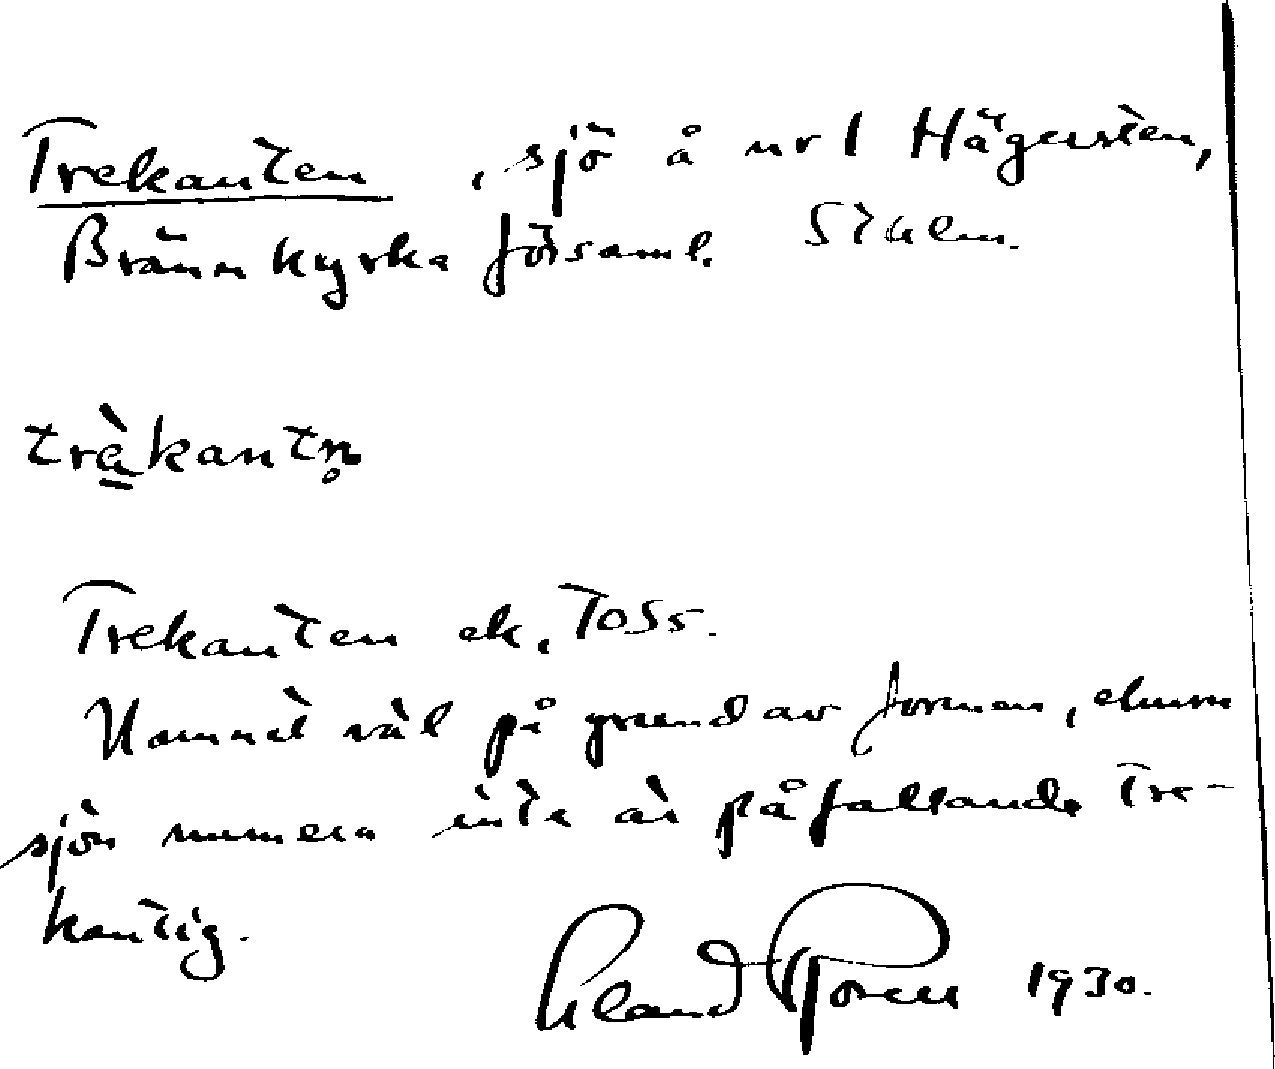 Trekanten, sjö å nr 1 Hägersten,
Brännkyrka församl. Sthlm.
trè̳kantn̥
Trekanten ek. Toss.
Namnet väl på grund av formen, ehuru
sjön numera inte är påfallande tre-
kantig.
1930.